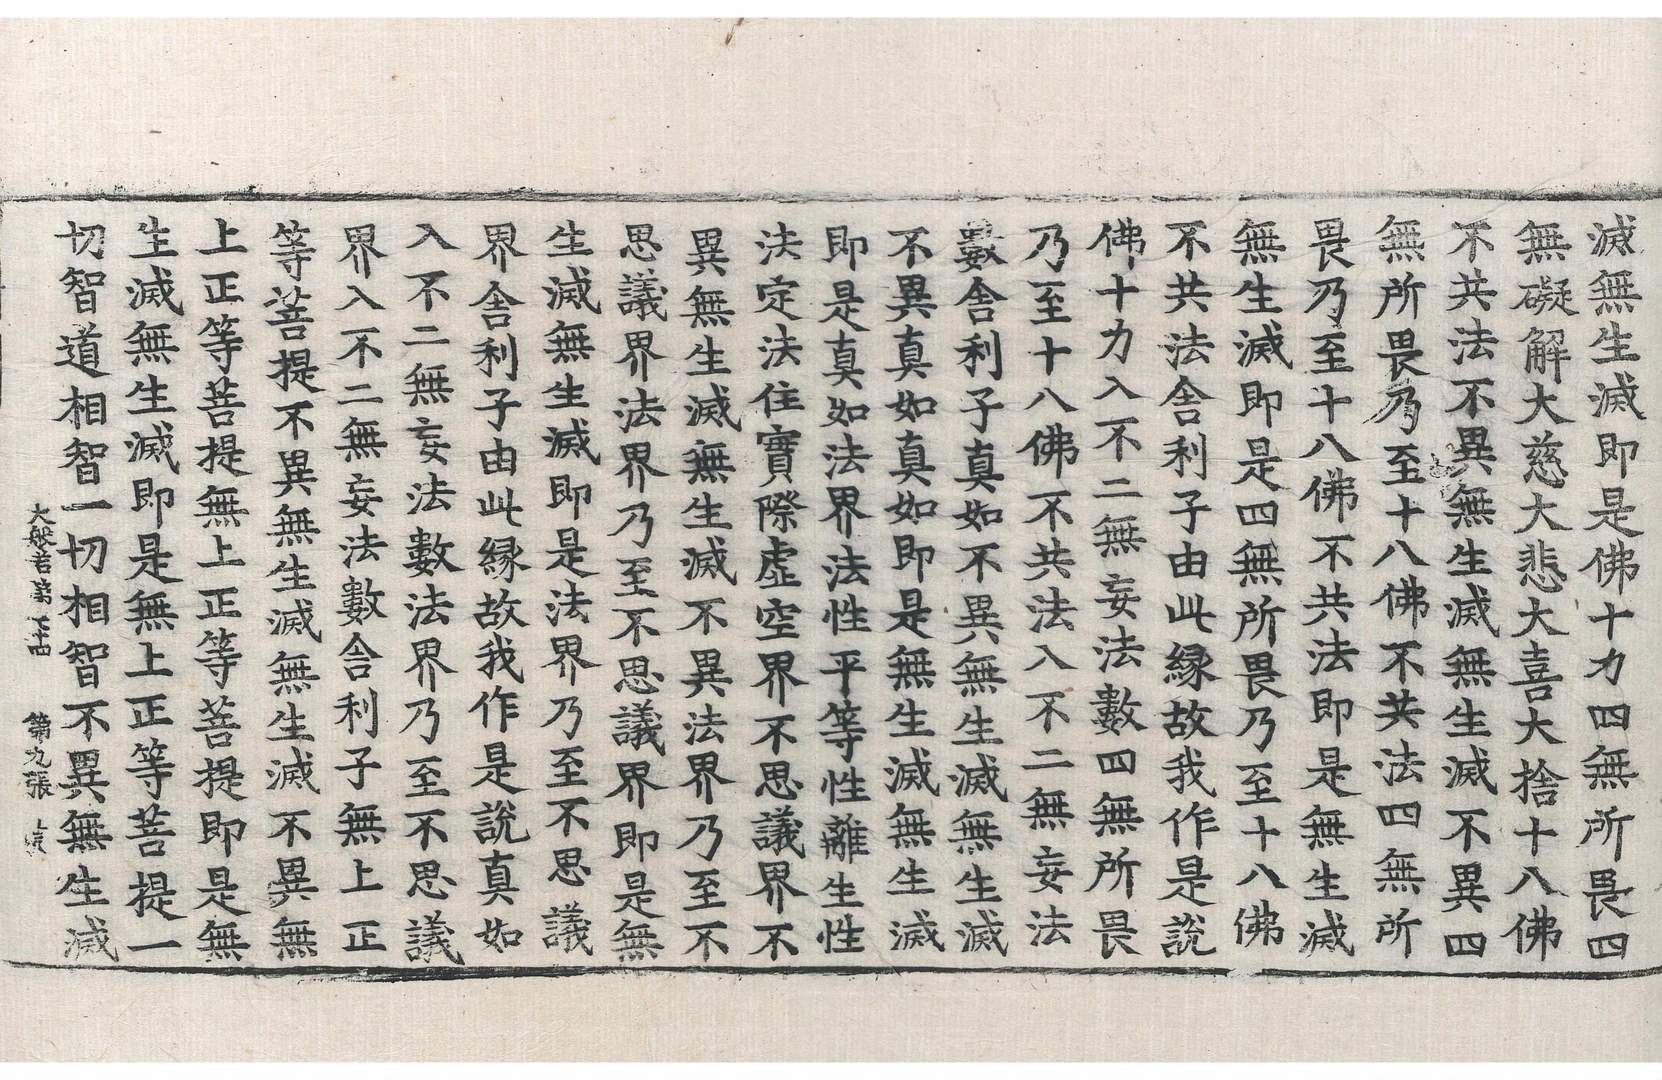 滅無生滅即是佛十力四無所畏四
無礙解大慈大悲大喜大捨十八佛
不共法不異無生滅無生滅不異四
無所畏乃至十八佛不共法四無所
畏乃至十八佛不共法即是無生滅
無生滅即是四無所畏乃至十八佛
不共法舍利子由此縁故我作是說
佛十力入不二無妄法數四無所畏
乃至十八佛不共法入不二無妄法
數舍利子真如不異無生滅無生滅
不異真如真如即是無生滅無生滅
即是真如法界法性平等性離生性
法定法住實際虛空界不思議界不
異無生滅無生滅不異法界乃至不
思議界法界乃至不思議界即是無
生滅無生滅即是法界乃至不思議
界舍利子由此縁故我作是說真如
入不二無妄法數法界乃至不思議
界入不二無妄法數舍利子無上正
等菩提不異無生滅無生滅不異無
上正等菩提無上正等菩提即是無
生滅無生滅即是無上正等菩提一
切智道相智一切相智不異無生滅
大般若第七十四 第九張